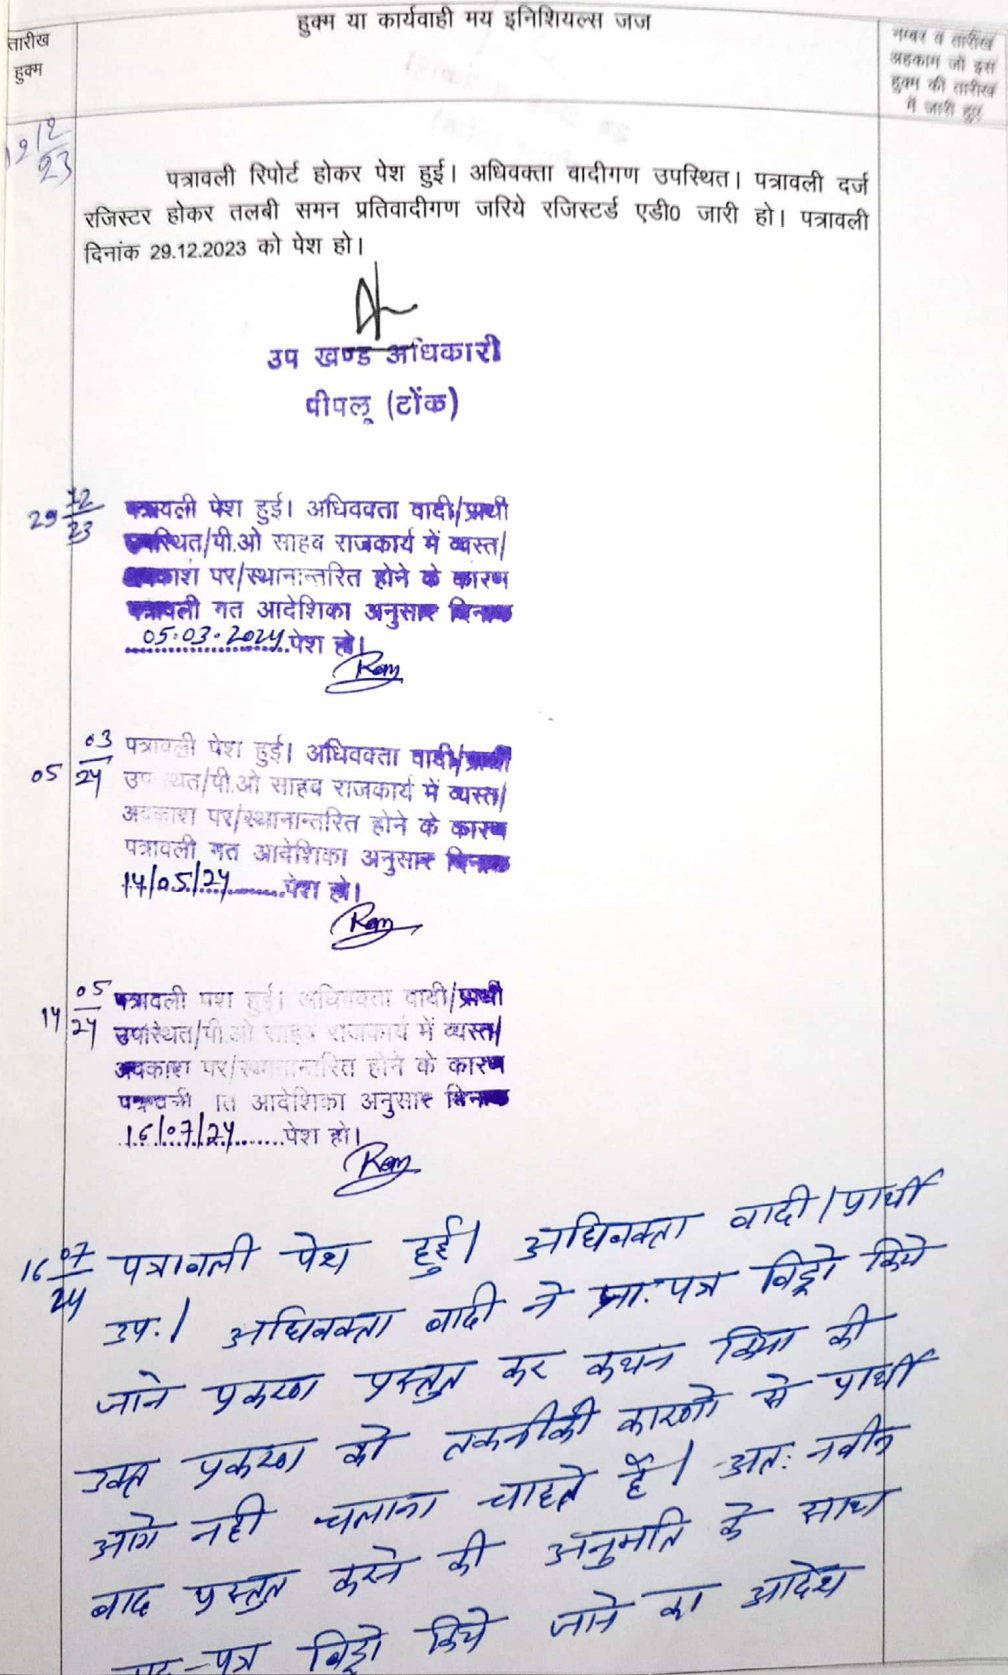 हुक्म या कार्यवाही मय इनिशियल्स जज
तारीख
हुक्म
नम्बर व तारीख
अहकाम जो इस
हुक्म की तारीख
में जारी हुए
12/12/23
पत्रावली रिपोर्ट होकर पेश हुई। अधिवक्ता वादीगण उपस्थित। पत्रावली दर्ज
रजिस्टर होकर तलबी समन प्रतिवादीगण जरिये रजिस्टर्ड एडी0 जारी हो। पत्रावली
दिनांक 29.12.2023 को पेश हो।
उप खण्ड अधिकारी
पीपलू (टोंक)
29 12/23
पत्रावली पेश हुई। अधिवक्ता वादी/प्रार्थी
उपस्थित/पी.ओ साहब राजकार्य में व्यस्त/
अवकाश पर/स्थानान्तरित होने के कारण
पत्रावली गत आदेशिका अनुसार दिनांक
05.03.2024 पेश हो।
Ram
05 03/24
पत्रावली पेश हुई। अधिवक्ता वादी/प्रार्थी
उपस्थित/पी.ओ साहब राजकार्य में व्यस्त/
अवकाश पर/स्थानान्तरित होने के कारण
पत्रावली गत आदेशिका अनुसार दिनांक
14/05/24 पेश हो।
Ram
14 05/24
पत्रावली पेश हुई। अधिवक्ता वादी/प्रार्थी
उपस्थित/पी.ओ साहब राजकार्य में व्यस्त/
अवकाश पर/स्थानान्तरित होने के कारण
पत्रावली गत आदेशिका अनुसार दिनांक
16/07/24 पेश हो।
Ram
16 07/24
पत्रावली पेश हुई। अधिवक्ता वादी/प्रार्थी
उप.। अधिवक्ता वादी ने प्रा.पत्र विड्रो किये
जाने प्रकरण प्रस्तुत कर कथन किया की
उक्त प्रकरण को तकनीकी कारणो से प्रार्थी
आगे नही चलाना चाहते हैं। अतः नवीन
वाद प्रस्तुत करने की अनुमति के साथ
पत्र विड्रो किये जाने का आदेश